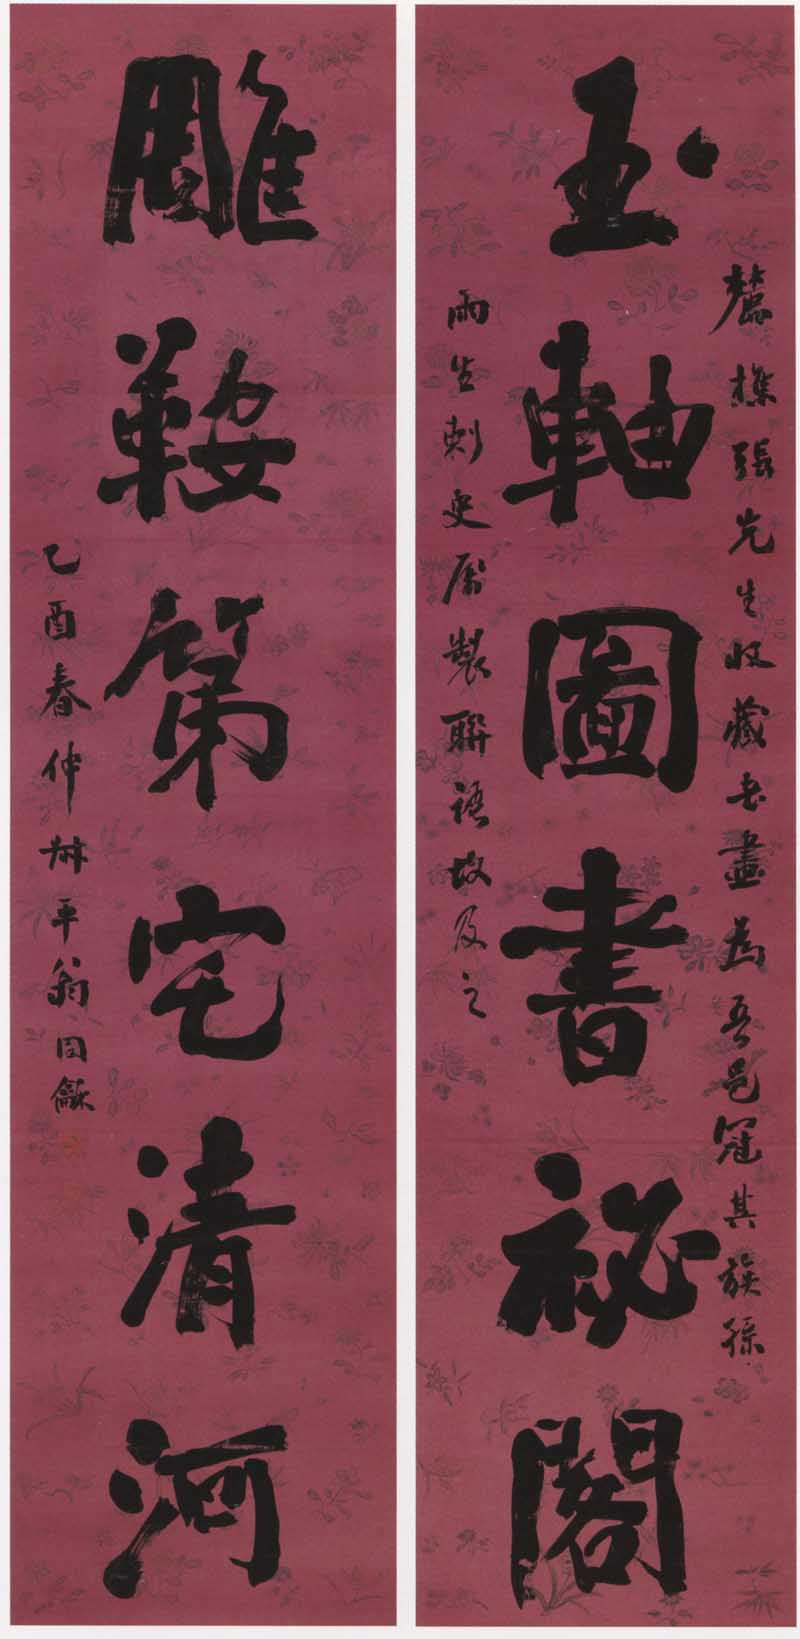 玉軸圖書祕閣
麓樵張先生收藏書畫為吾邑冠其族孫
雨生刺史屬製聯語故及之
雕鞍第宅清河
乙酉春仲叔平翁同龢